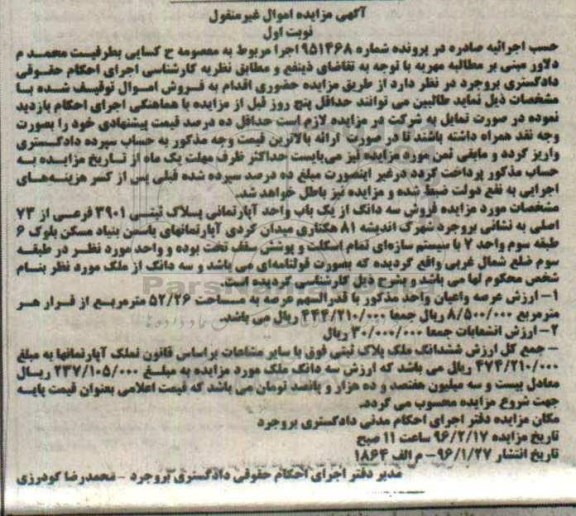 آگهی مزایده اموال غیرمنقول
نوبت اول
حسب اجرائیه صادره در پرونده شماره ۹۵۱۴۶۸اجرا مربوط به معصومه ح کسایی بطرفیت محمد م
دلاور مبنی بر مطالبه مهریه با توجه به تقاضای ذینفع و مطابق نظریه کارشناسی اجرای احکام حقوقی
دادگستری بروجرد در نظر دارد از طریق مزایده حضوری اقدام به فروش اموال توقیف شده با
مشخصات ذیل نماید طالبین می توانند حداقل پنج روز قبل از مزایده با هماهنگی اجرای احکام بازدید
نموده در صورت تمایل به شرکت در مزایده لازم است حداقل ده درصد قیمت پیشنهادی خود را بصورت
وجه نقد همراه داشته باشند تا در صورت ارائه بالاترین قیمت وجه مذکور به حساب سپرده دادگستری
واریز گردد و مابقی ثمن مورد مزایده نیز می‌بایست حداکثر ظرف مهلت یک ماه از تاریخ مزایده به
حساب مذکور پرداخت گردد درغیر اینصورت مبلغ ده درصد سپرده شده قبلی پس از کسر هزینه‌های
اجرایی به نفع دولت ضبط شده و مزایده نیز باطل خواهد شد.
مشخصات مورد مزایده فروش سه دانگ از یک باب واحد آپارتمانی پلاک ثبتی ۳۹۰۱ فرعی از ۷۳
اصلی به نشانی بروجرد شهرک اندیشه ۸۱ هکتاری میدان کردی آپارتمانهای یاسمن بنیاد مسکن بلوک ۶
طبقه سوم واحد ۷ با سیستم سازه‌ای تمام اسکلت و پوشش سقف تخت بوده و واحد مورد نظر در طبقه
سوم ضلع شمال غربی واقع گردیده که بصورت قولنامه‌ای می باشد و سه دانگ از ملک مورد نظر بنام
شخص محکوم لها می باشد و بشرح ذیل کارشناسی گردیده است.
۱- ارزش عرصه واعیان واحد مذکور با قدرالسهم عرصه به مساحت ۵۲/۲۶ مترمربع از قرار هر
مترمربع ۸/۵۰۰/۰۰۰ ریال جمعا ۴۴۴/۲۱۰/۰۰۰ ریال می باشد.
۲- ارزش انشعابات جمعا ۳۰/۰۰۰/۰۰۰ ریال
- جمع کل ارزش ششدانگ ملک پلاک ثبتی فوق با سایر مشاعات براساس قانون تملک آپارتمانها به مبلغ
۴۷۴/۲۱۰/۰۰۰ ریال می باشد که ارزش سه دانگ ملک مورد مزایده به مبلغ ۲۳۷/۱۰۵/۰۰۰ ریسال
معادل بیست و سه میلیون هفتصد و ده هزار و پانصد تومان می باشد که قیمت اعلامی بعنوان قیمت پایه
جهت شروع مزایده محسوب می گردد.
مکان مزایده دفتر اجرای احکام مدنی دادگستری بروجرد
تاریخ مزایده ۹۶/۲/۱۷ ساعت ۱۱ صبح
تاریخ انتشار ۹۶/۱/۲۷- م الف ۱۸۶۴
مدیر دفتر اجرای احکام حقوقی دادگستری بروجرد - محمدرضا گودرزی